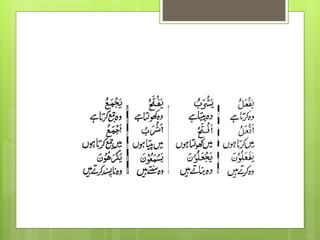 يَفْعَلُ يَشْرَبُ يَفْتَحُ يَجْمَعُ
وہ کرتا ہے وہ پیتا ہے وہ کھولتا ہے وہ جمع کرتا ہے
أَفْعَلُ أَفْتَحُ أَشْرَبُ أَجْمَعُ
میں کرتا ہوں میں کھولتا ہوں میں پیتا ہوں میں جمع کرتا ہوں
يَفْعَلُوْنَ يَجْعَلُوْنَ يَسْمَعُوْنَ يَكْرَهُوْنَ
وہ کرتے ہیں وہ بناتے ہیں وہ سنتے ہیں وہ ناپسند کرتے ہیں